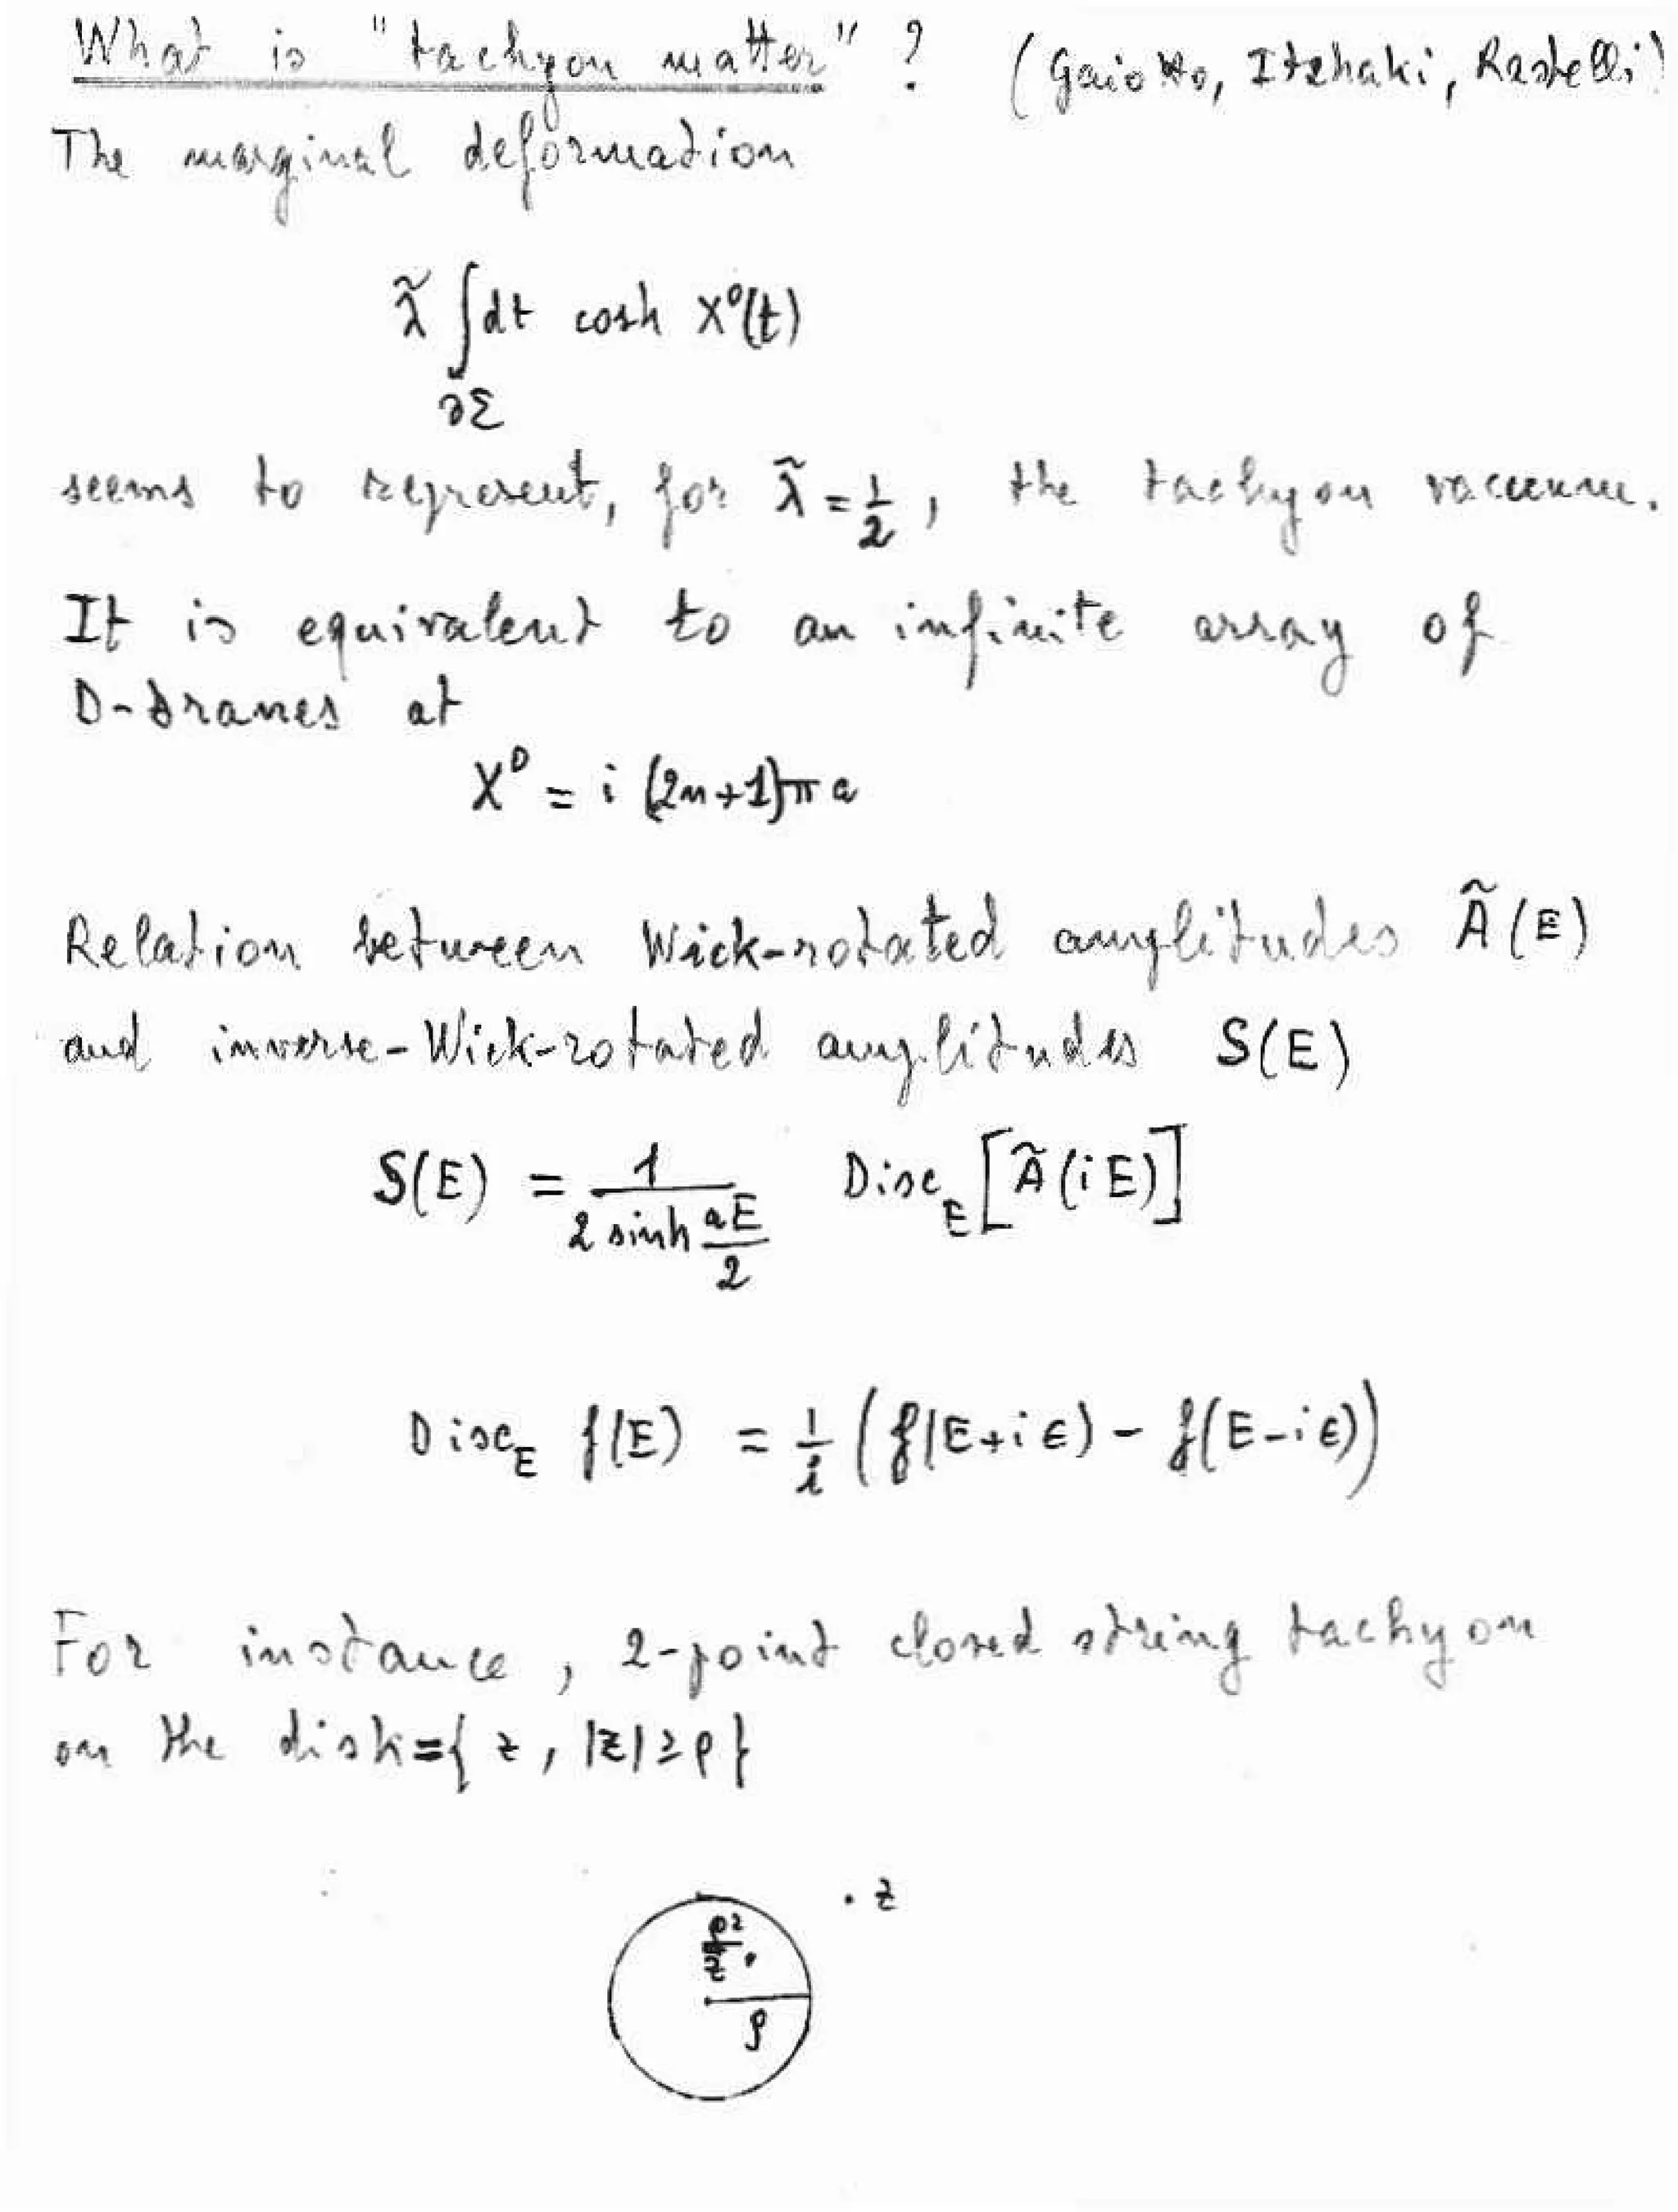 What is "tachyon matter"? (Gaiotto, Itzhaki, Rastelli)
The marginal deformation
λ̃ ∫_{∂Σ} dt cosh X⁰(t)
seems to represent, for λ̃ = 1/2, the tachyon vacuum.
It is equivalent to an infinite array of
D-branes at
X⁰ = i (2n+1)π a
Relation between Wick-rotated amplitudes Ã(E)
and inverse-Wick-rotated amplitudes S(E)
S(E) = 1/(2 sinh aE/2) Disc_E [Ã(iE)]
Disc_E f(E) = 1/i (f(E+iε) - f(E-iε))
For instance, 2-point closed string tachyon
on the disk={z, |z|≥ρ}
. z
ρ²/z̄ .
ρ